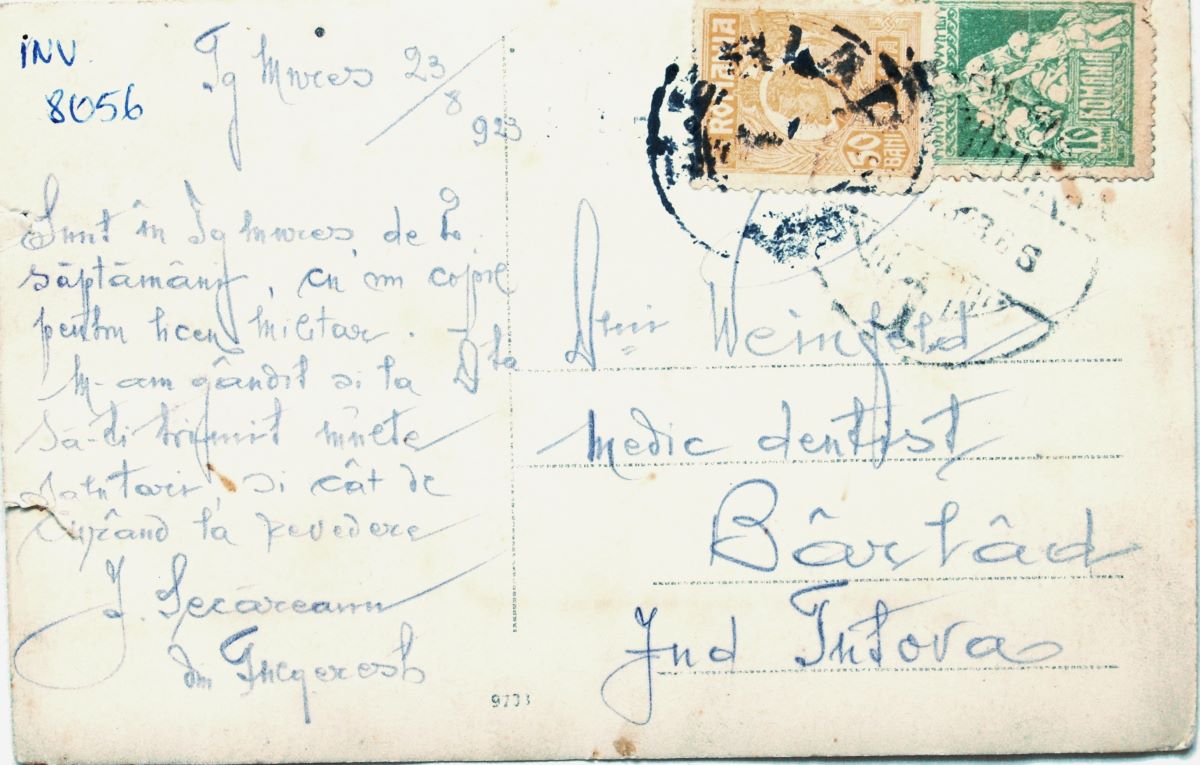 INV
8056
Tg Mureș 23/8 923
Sunt în Tg Mureș, de o
săptămână, cu un copil
pentru liceu militar.
M-am gândit și la D-ta
să-ți trimit multe
salutări, și cât de
curând la revedere
I. Secăreanu
din
Dlui Weinfeld
Medic dentist
Bârlad
Jud Tutova
ROMANIA
50
BANI
ROMANIA
10
9733